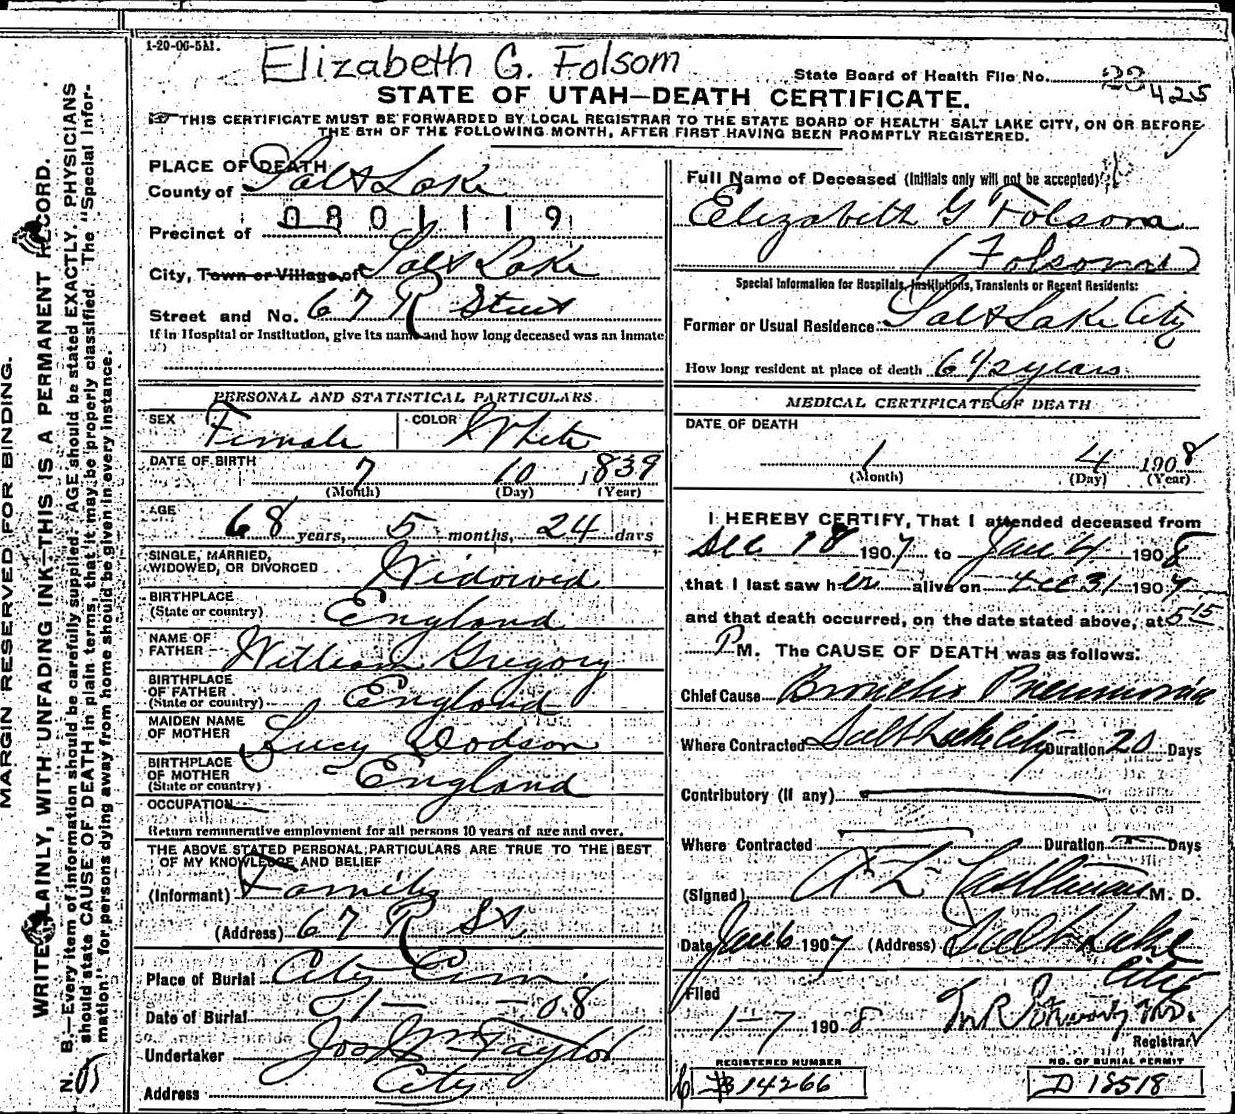 1-20-06-5M.
Elizabeth G. Folsom
State Board of Health File No. 425
STATE OF UTAH—DEATH CERTIFICATE.
THIS CERTIFICATE MUST BE FORWARDED BY LOCAL REGISTRAR TO THE STATE BOARD OF HEALTH SALT LAKE CITY, ON OR BEFORE
THE 5TH OF THE FOLLOWING MONTH, AFTER FIRST HAVING BEEN PROMPTLY REGISTERED.
MARGIN RESERVED FOR BINDING.
WRITE PLAINLY, WITH UNFADING INK—THIS IS A PERMANENT RECORD.
N. B.—Every item of information should be carefully supplied. AGE should be stated EXACTLY. PHYSICIANS
should state CAUSE OF DEATH in plain terms, that it may be properly classified. The "Special Infor-
mation" for persons dying away from home should be given in every instance.
PLACE OF DEATH
County of Salt Lake
0801119
Precinct of
City, Town or Village of Salt Lake
Street and No. 67 R Street
If in Hospital or Institution, give its name and how long deceased was an inmate
PERSONAL AND STATISTICAL PARTICULARS
SEX Female COLOR White
DATE OF BIRTH 7 10 1839
(Month) (Day) (Year)
AGE 68 years, 5 months, 24 days
SINGLE, MARRIED,
WIDOWED, OR DIVORCED Widowed
BIRTHPLACE
(State or country) England
NAME OF
FATHER William Gregory
BIRTHPLACE
OF FATHER
(State or country) England
MAIDEN NAME
OF MOTHER Lucy Dodson
BIRTHPLACE
OF MOTHER
(State or country) England
OCCUPATION
Return remunerative employment for all persons 10 years of age and over.
THE ABOVE STATED PERSONAL PARTICULARS ARE TRUE TO THE BEST
OF MY KNOWLEDGE AND BELIEF
(Informant) Family
(Address) 67 R St
Place of Burial City Cem
Date of Burial 08
Undertaker Jos Wm Taylor
Address City
Full Name of Deceased (Initials only will not be accepted)
Elizabeth G Folsom
(Folsom)
Special Information for Hospitals, Institutions, Transients or Recent Residents:
Former or Usual Residence Salt Lake City
How long resident at place of death years
MEDICAL CERTIFICATE OF DEATH
DATE OF DEATH
1 4 1908
(Month) (Day) (Year)
I HEREBY CERTIFY, That I attended deceased from
Dec 18 1907 to Jan 4 1908
that I last saw her alive on Dec 31 1907
and that death occurred, on the date stated above, at 5 15
P M. The CAUSE OF DEATH was as follows:
Chief Cause Pneumonia
Where Contracted Salt Lake City Duration 20 Days
Contributory (if any)
Where Contracted Duration Days
(Signed) M. D.
Date Jan 6 1907 (Address) Salt Lake
City
Filed
1-7 1908
Registrar
REGISTERED NUMBER
14266
NO. OF BURIAL PERMIT
D 18518